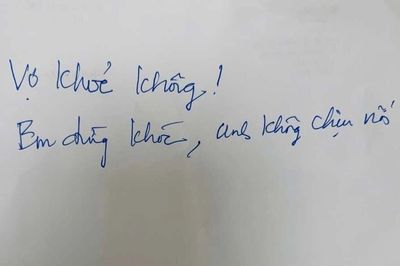 Vợ khoẻ không!
Em đừng khóc, anh không chịu nỗi